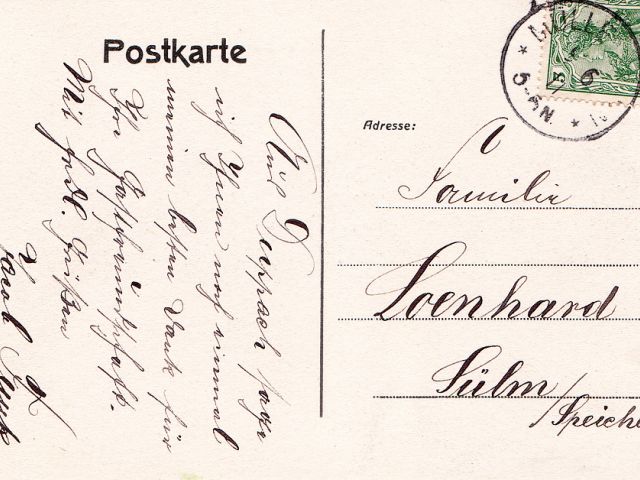 Postkarte
Aus Deppach sage
ich Ihnen noch einmal
meinen besten Dank für
Ihre Gastfreundschaft.
Mit frdl. Grüßen
Jacob
Adresse:
Familie
Loenhard
Sülm
Speicher
5-6N